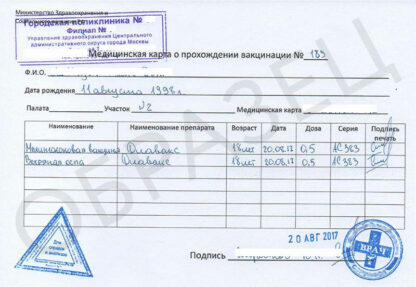 Министерство Здравоохранения и
Городская поликлиника №
Филиал №
Управление здравоохранения Центрального
административного округа города Москвы
Медицинская карта о прохождении вакцинации № 189
Ф.И.О.
Дата рождения 11 августа 1998 г.
Палата Участок №2 Медицинская карта
Наименование Наименование препарата Возраст Дата Доза Серия Подпись печать
вакцина 18 лет 20.08.17 0,5 АС383
Ветряная оспа 18 лет 20.08.17 0,5 АС383
ОБРАЗЕЦ
20 АВГ 2017
Для справок и
ВРАЧ
Подпись